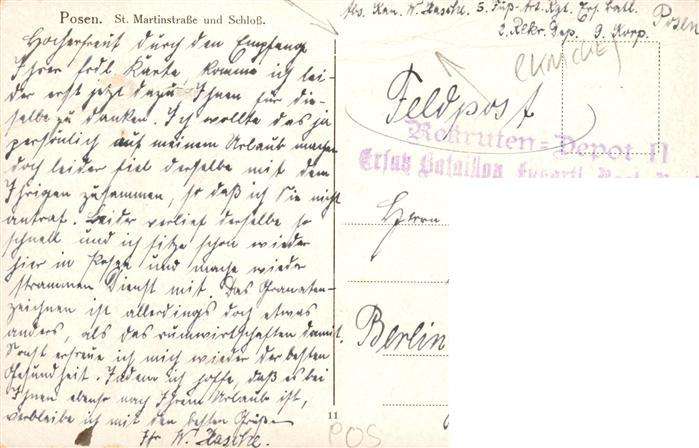 Posen. St. Martinstraße und Schloß.
Hocherfreut durch den Empfang
Ihrer frdl. Karte komme ich lei-
der erst jetzt dazu, Ihnen für die-
selbe zu danken. Ich wollte das ja
persönlich auf meinem Urlaub machen
doch leider fiel derselbe mit dem
Ihrigen zusammen, so daß ich Sie nicht
antraf. Leider verlief derselbe so
schnell und ich sitze schon wieder
hier in Posen und mache wieder
strammen Dienst mit. Das Granaten-
zeichnen ist allerdings doch etwas
anders, als das rumwirtschaften damit.
Sonst erfreue ich mich wieder der besten
Gesundheit. Indem ich hoffe, daß es bei
Ihnen ebenso nach Ihrem Urlaub ist,
verbleibe ich mit den besten Grüßen
Ihr W.
Abs. Kan. W. 5. Fuß-Art. Rgt. Ers. Batl.
2. Rekr. Dep. 9. Korp.
Posen
Feldpost
Rekruten-Depot II
Ersatz Bataillon
Herrn
Berlin
11
POS